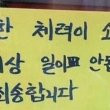 한 체력이 소
상 일이 안
죄송합니다